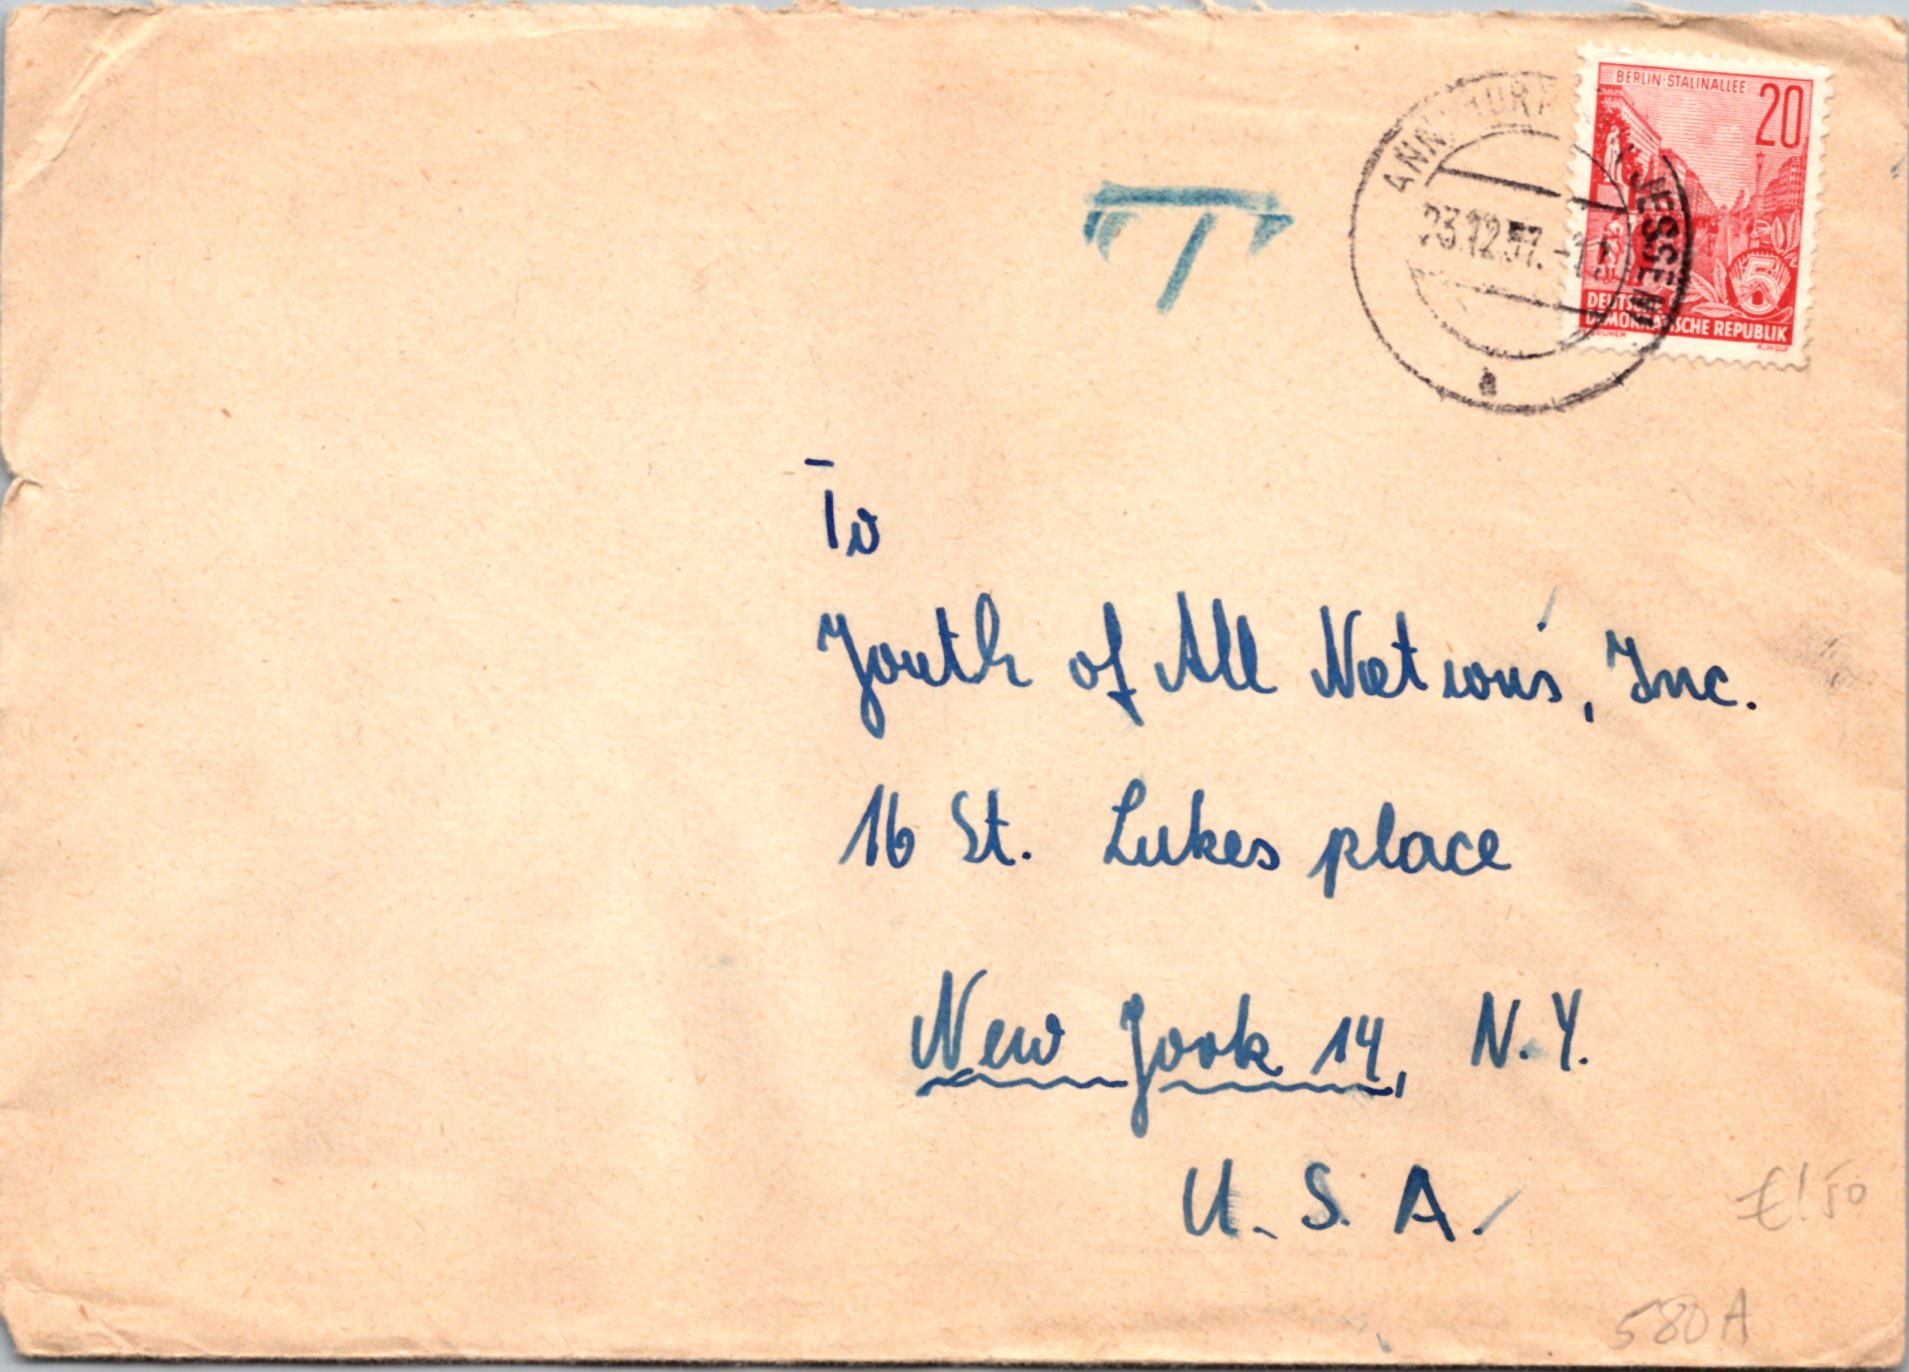 BERLIN·STALINALLEE
20
5
DEUTSCHE
DEMOKRATISCHE REPUBLIK
JESSEN
23.12.57.
a
T
To
Youth of All Nations, Inc.
16 St. Lukes place
New York 14, N.Y.
U. S. A.
580A